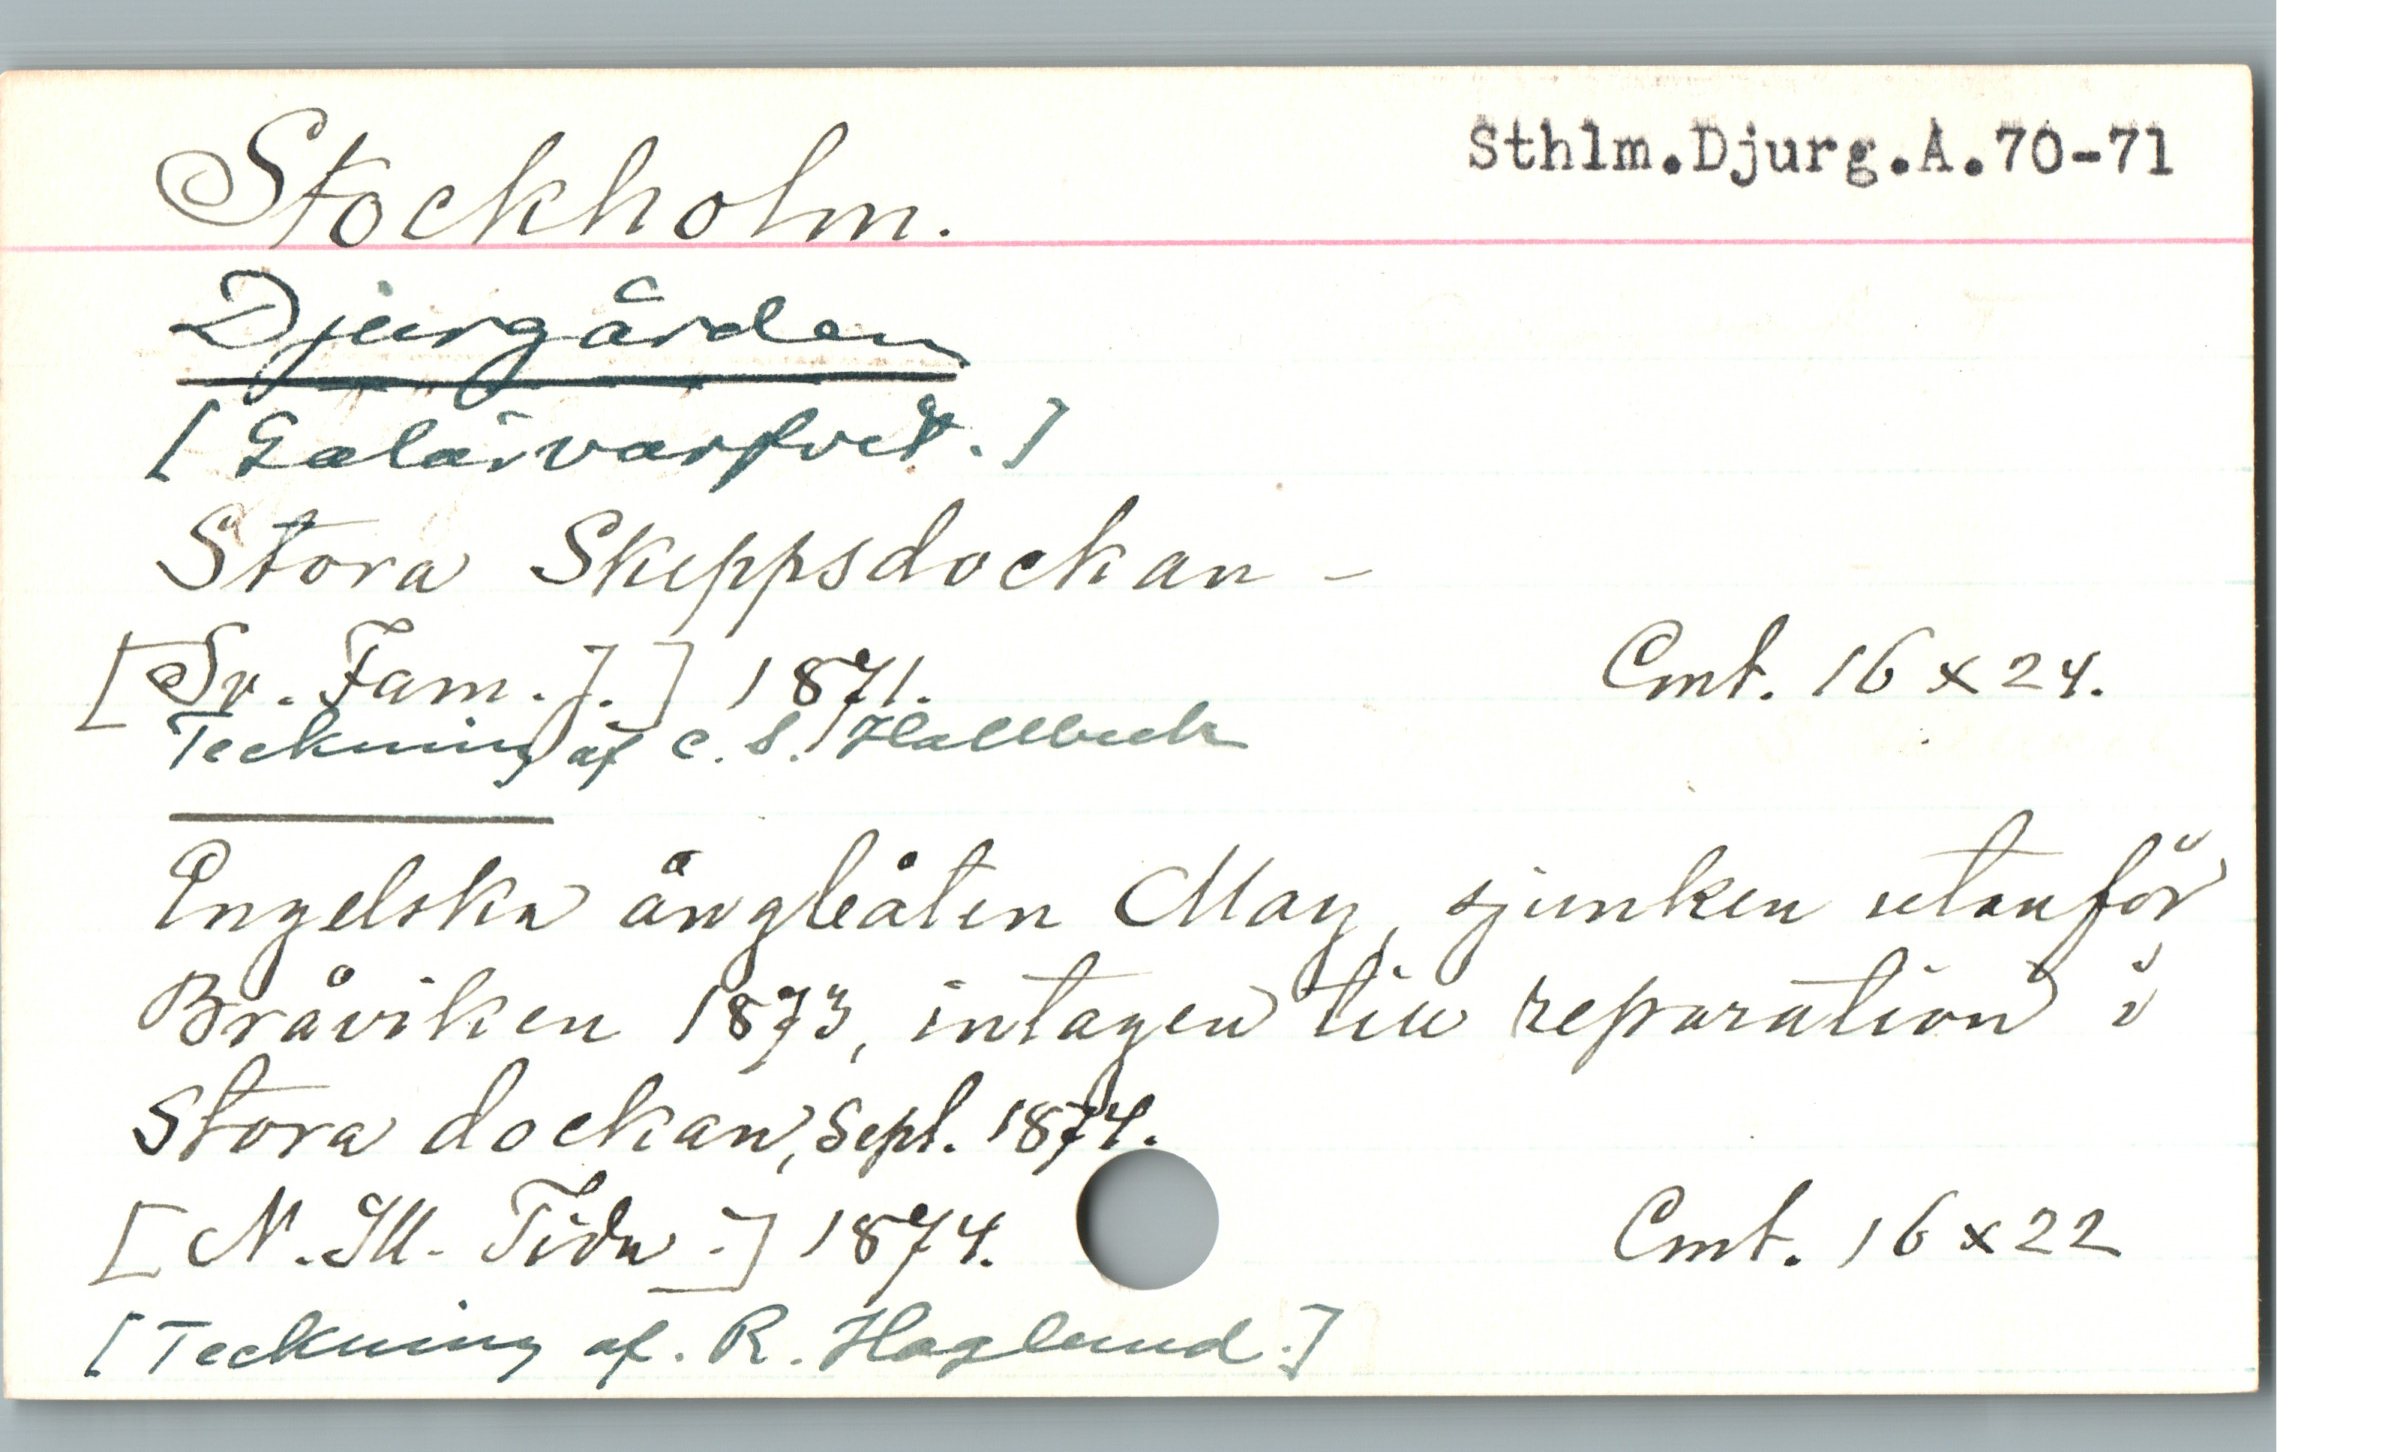 Stockholm.
Sthlm.Djurg.A.70-71
Djurgården
[Galärvarfvet.]
Stora Skeppsdockan -
[Sv. Fam. J.] 1871.
Cmt. 16 x 24.
Teckning af C. S. Hallbeck
Engelska ångbåten May, sjunken utanför
Bråviken 1873, intagen till reparation i
Stora dockan, Sept. 1874.
[N. Ill. Tidn.] 1874.
Cmt. 16 x 22
[Teckning af. R. Haglund.]